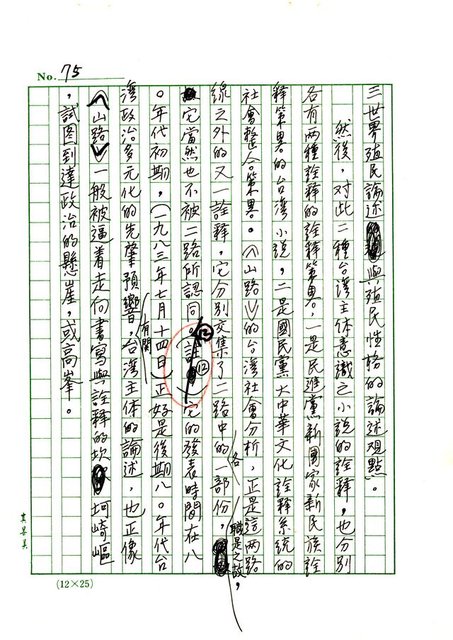 No. 75
三世界殖民論述與殖民性格的論述观點。
然後,对此二種台湾主体意識之小說的詮釋,也分別
各有两種詮釋的詮釋策畧,一是民進黨新国家新民族詮
釋策畧的台湾小說,二是國民黨大中華文化詮釋系統的
社會整合策畧。《山路》的台湾社會分析,正是這两路
線之外的又一詮釋,它分別交集了二路中的各一部份,職是之故,
它當然也不被二路所認同。⑫它的發表時間在八
〇年代初期,(一九八三年七月十四日)正好是後期八〇年代台
湾政治多元化的先聲預響,有関台湾主体的論述,也正像
《山路》一般被逼着走向書寫與詮釋的坎坷崎嶇
,試图到達政治的懸崖,或高峯。
(12×25)